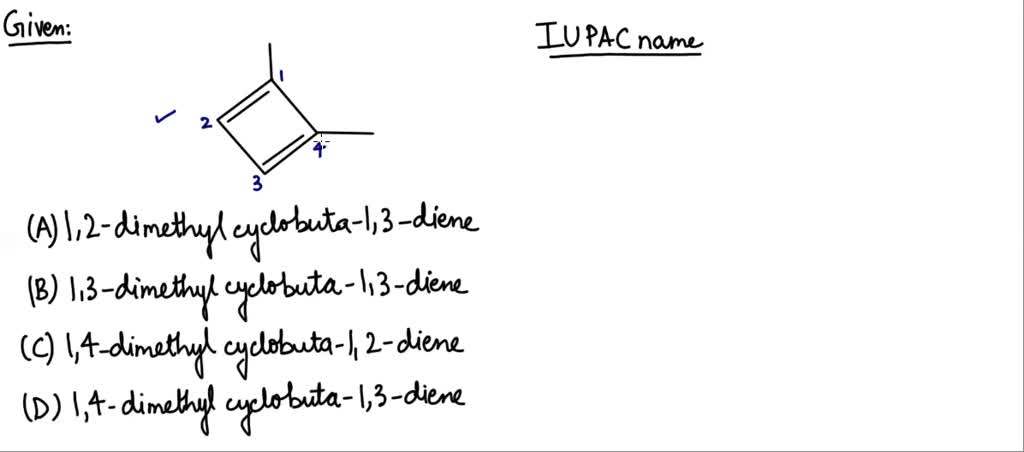 Given:
IUPAC name
1
2
4
3
(A) 1,2-dimethyl cyclobuta-1,3-diene
(B) 1,3-dimethyl cyclobuta-1,3-diene
(C) 1,4-dimethyl cyclobuta-1,2-diene
(D) 1,4-dimethyl cyclobuta-1,3-diene